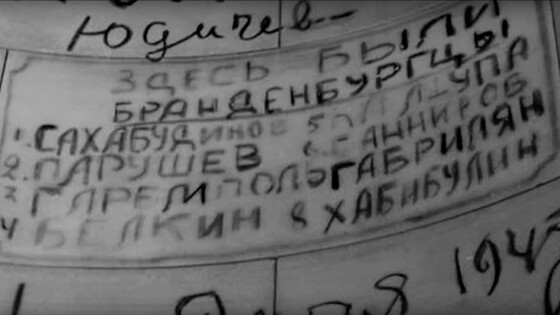 Юдичев
ЗДЕСЬ БЫЛИ
БРАНДЕНБУРГЦЫ
1. САХАБУДИНОВ 5
2. ПАРУШЕВ 6. ГАННИРОВ
3 ГАБРИЛЯН
4 БЕЛКИН 8 ХАБИБУЛИН
194